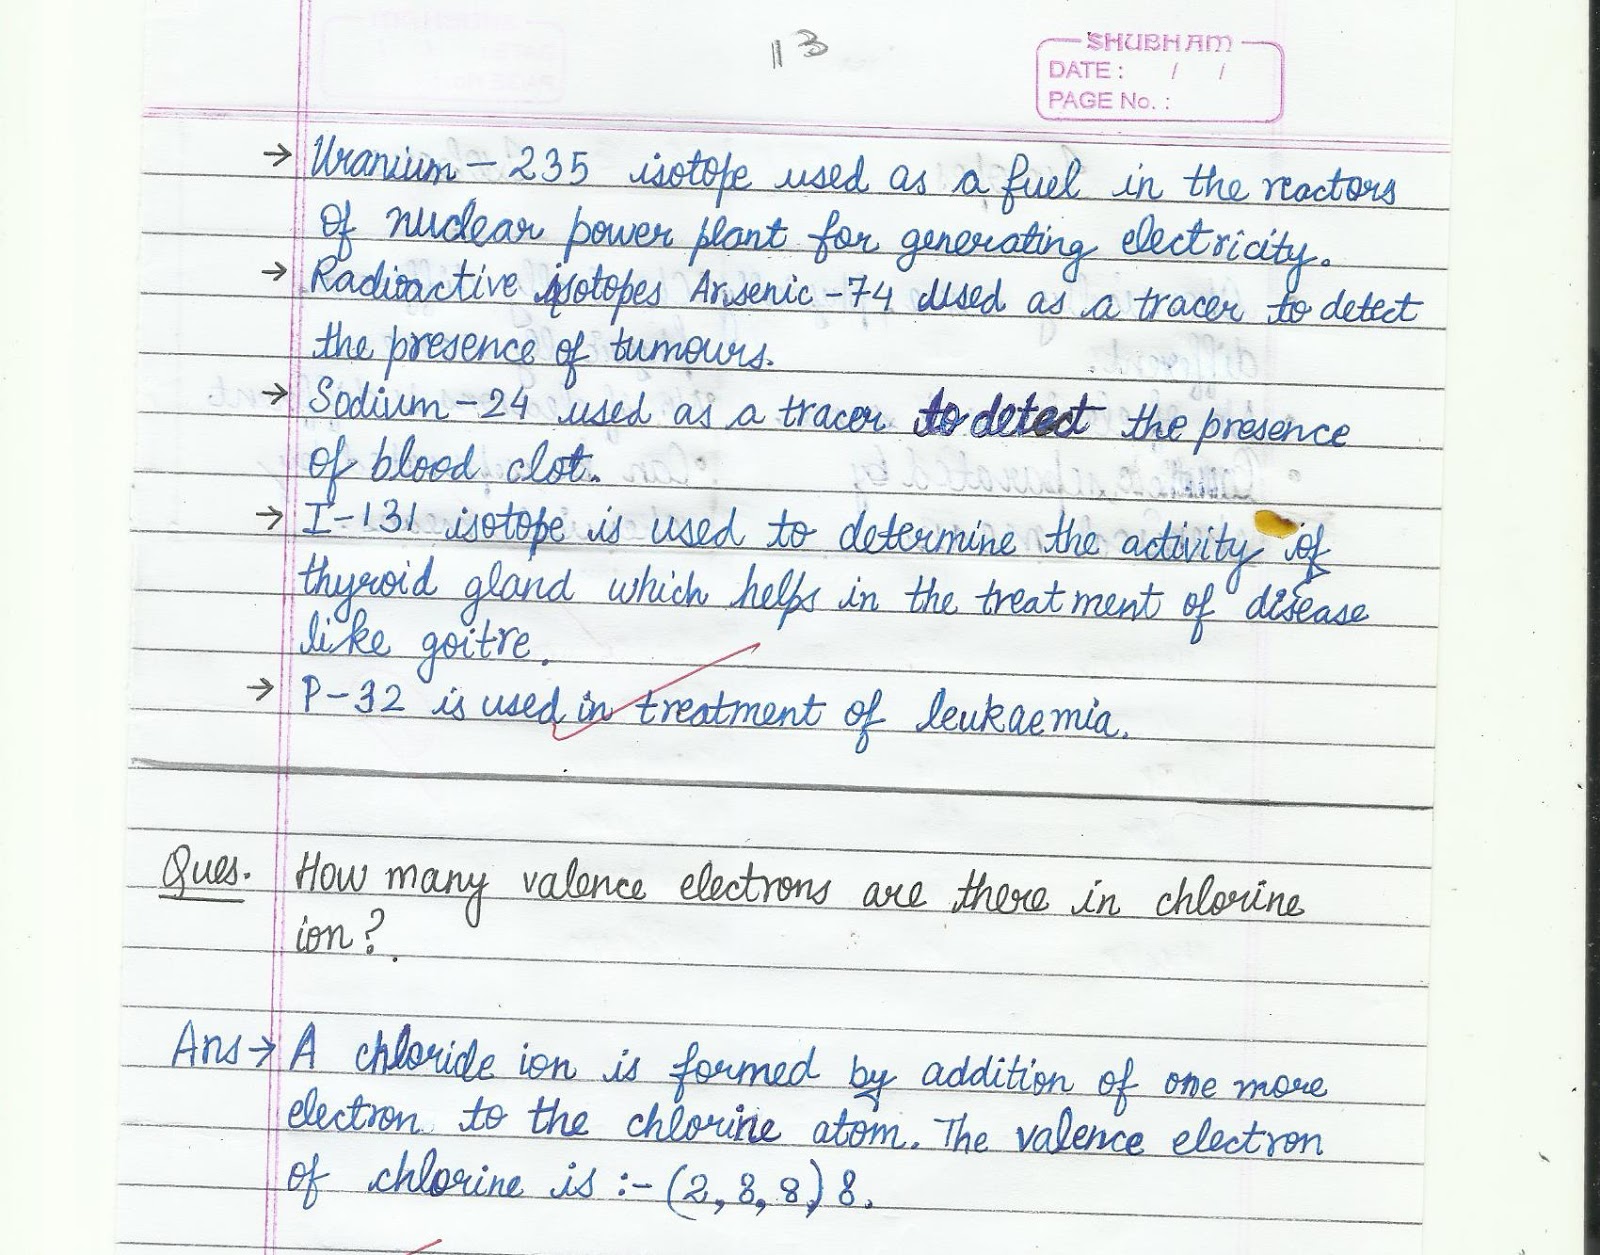 13
SHUBHAM
DATE : / /
PAGE No. :
→ Uranium - 235 isotope used as a fuel in the reactors
of nuclear power plant for generating electricity.
→ Radioactive isotopes Arsenic - 74 used as a tracer to detect
the presence of tumours.
→ Sodium - 24 used as a tracer to detect the presence
of blood clot.
→ I - 131 isotope is used to determine the activity of
thyroid gland which helps in the treatment of disease
like goitre.
→ P - 32 is used in treatment of leukaemia.
Ques. How many valence electrons are there in chlorine
ion?
Ans → A chloride ion is formed by addition of one more
electron to the chlorine atom. The valence electron
of chlorine is :- (2, 8, 8) 8.